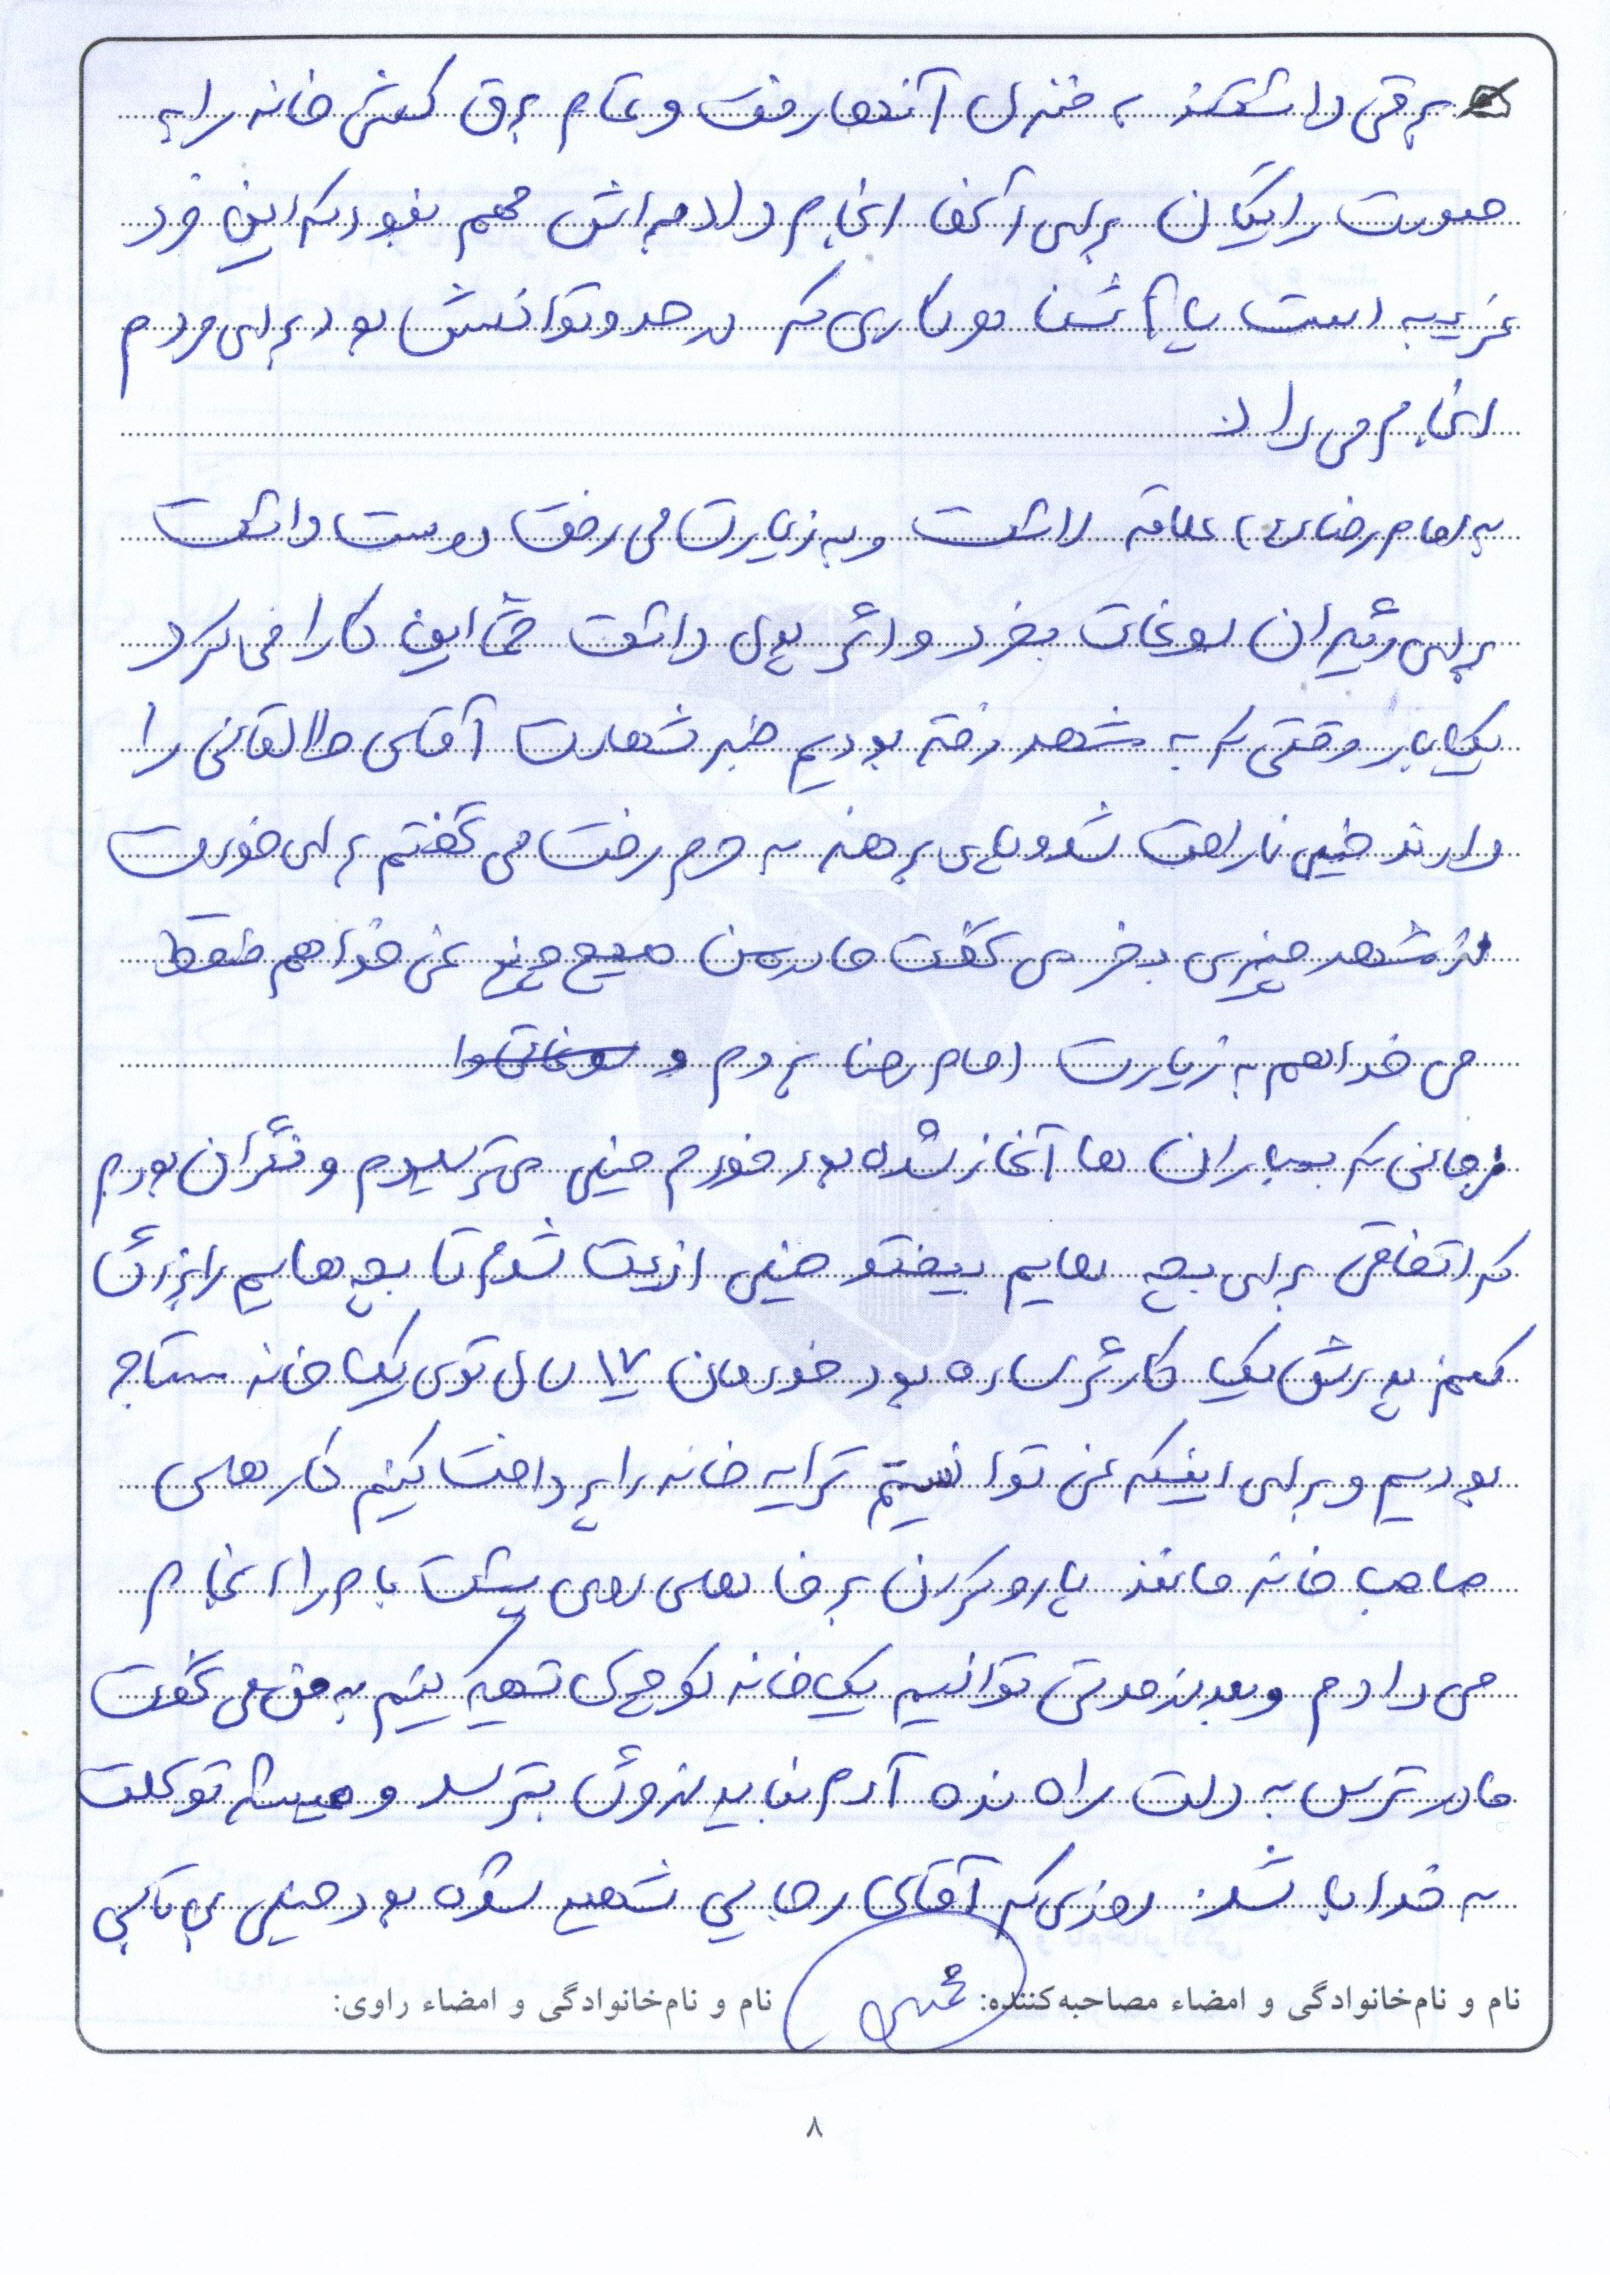 برقی داشتند به منزل آنها رفت و تمام برق کشی خانه را به
صورت رایگان برای آنها انجام داد برایش مهم نبود که این فرد
غریبه است یا آشنا هر کاری که در حد توانش بود برای مردم
انجام می داد.
به امام رضا (ع) علاقه داشت و به زیارت می رفت دوست داشت
برای دیگران سوغات بخرد و اگر پول داشت حتما این کار را می کرد
یک بار وقتی که به مشهد رفته بودیم خبر شهادت آقای طالقانی را
دادند خیلی ناراحت شد و پای برهنه به حرم رفت می گفتم برای خودت
از مشهد چیزی بخر می گفت مادر من هیچ چیز نمی خواهم فقط
می خواهم به زیارت امام رضا بروم و سوغات را
زمانی که بمباران ها آغاز شده بود خودم خیلی می ترسیدم و نگران بودم
که اتفاقی برای بچه هایم بیفتد خیلی اذیت شدم تا بچه هایم را بزرگ
کنم پدرش یک کارگر ساده بود خودمان ۱۷ سال توی یک خانه مستاجر
بودیم و برای اینکه نمی توانستیم کرایه خانه را پرداخت کنیم کارهای
صاحب خانه مانند پارو کردن برف های روی پشت بام را انجام
می دادم و بعد از مدتی توانستیم یک خانه کوچکی تهیه کنیم به من می گفت
مادر ترس به دلت راه نده آدم نباید از مرگ بترسد و همیشه توکلت
به خدا باشد. روزی که آقای رجایی شهید شده بود خیلی بی تابی
نام و نام‌خانوادگی و امضاء مصاحبه‌کننده: نام و نام‌خانوادگی و امضاء راوی:
۸